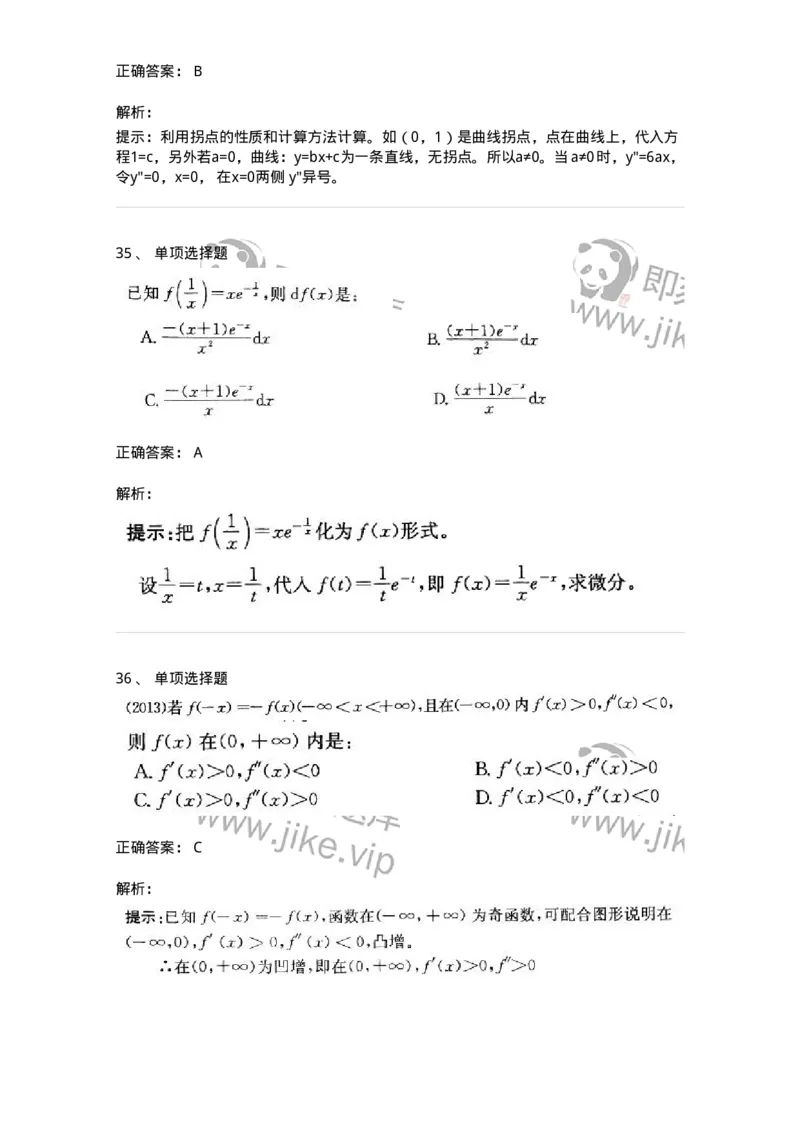 正确答案： B
解析：
提示：利用拐点的性质和计算方法计算。如（0，1）是曲线拐点，点在曲线上，代入方
程1=c，另外若a=0，曲线：y=bx+c为一条直线，无拐点。所以a≠0。当 a≠0时，y"=6ax，
令y"=0，x=0， 在x=0两侧 y"异号。
35 、 单项选择题
已知 f(1/x)=xe^(-1/x),则 df(x)是:
A. -(x+1)e^(-x)/x² dx B. (x+1)e^(-x)/x² dx
C. -(x+1)e^(-x)/x dx D. (x+1)e^(-x)/x dx
即
www.jik
正确答案： A
解析：
提示:把 f(1/x)=xe^(-1/x)化为 f(x)形式。
设1/x=t,x=1/t,代入 f(t)=1/t e^(-t),即 f(x)=1/x e^(-x),求微分。
36 、 单项选择题
(2013)若 f(-x)=-f(x)(-∞<x<+∞),且在(-∞,0)内 f′(x)>0,f″(x)<0,
则 f(x)在(0,+∞)内是:
A. f′(x)>0,f″(x)<0 B. f′(x)<0,f″(x)>0
C. f′(x)>0,f″(x)>0 D. f′(x)<0,f″(x)<0
www.jike.vip
www.jik
正确答案： C
解析：
提示:已知 f(-x)=-f(x),函数在(-∞,+∞)为奇函数,可配合图形说明在
(-∞,0),f′(x)>0,f″(x)<0,凸增。
∴在(0,+∞)为凹增,即在(0,+∞),f′(x)>0,f″>0